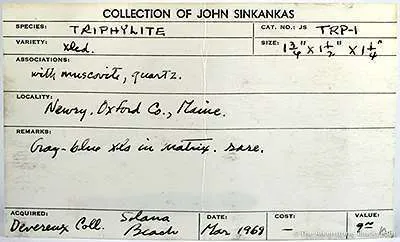 COLLECTION OF JOHN SINKANKAS
SPECIES: TRIPHYLITE CAT. NO: JS TRP-1
VARIETY: xled. SIZE: 1 3/4" x 1 1/2" x 1 1/4"
ASSOCIATIONS:
with muscovite, quartz.
LOCALITY:
Newry, Oxford Co., Maine.
REMARKS:
Gray-blue xls in matrix. rare.
ACQUIRED: Devereux Coll. Solana Beach DATE: Mar 1968 COST: - VALUE: